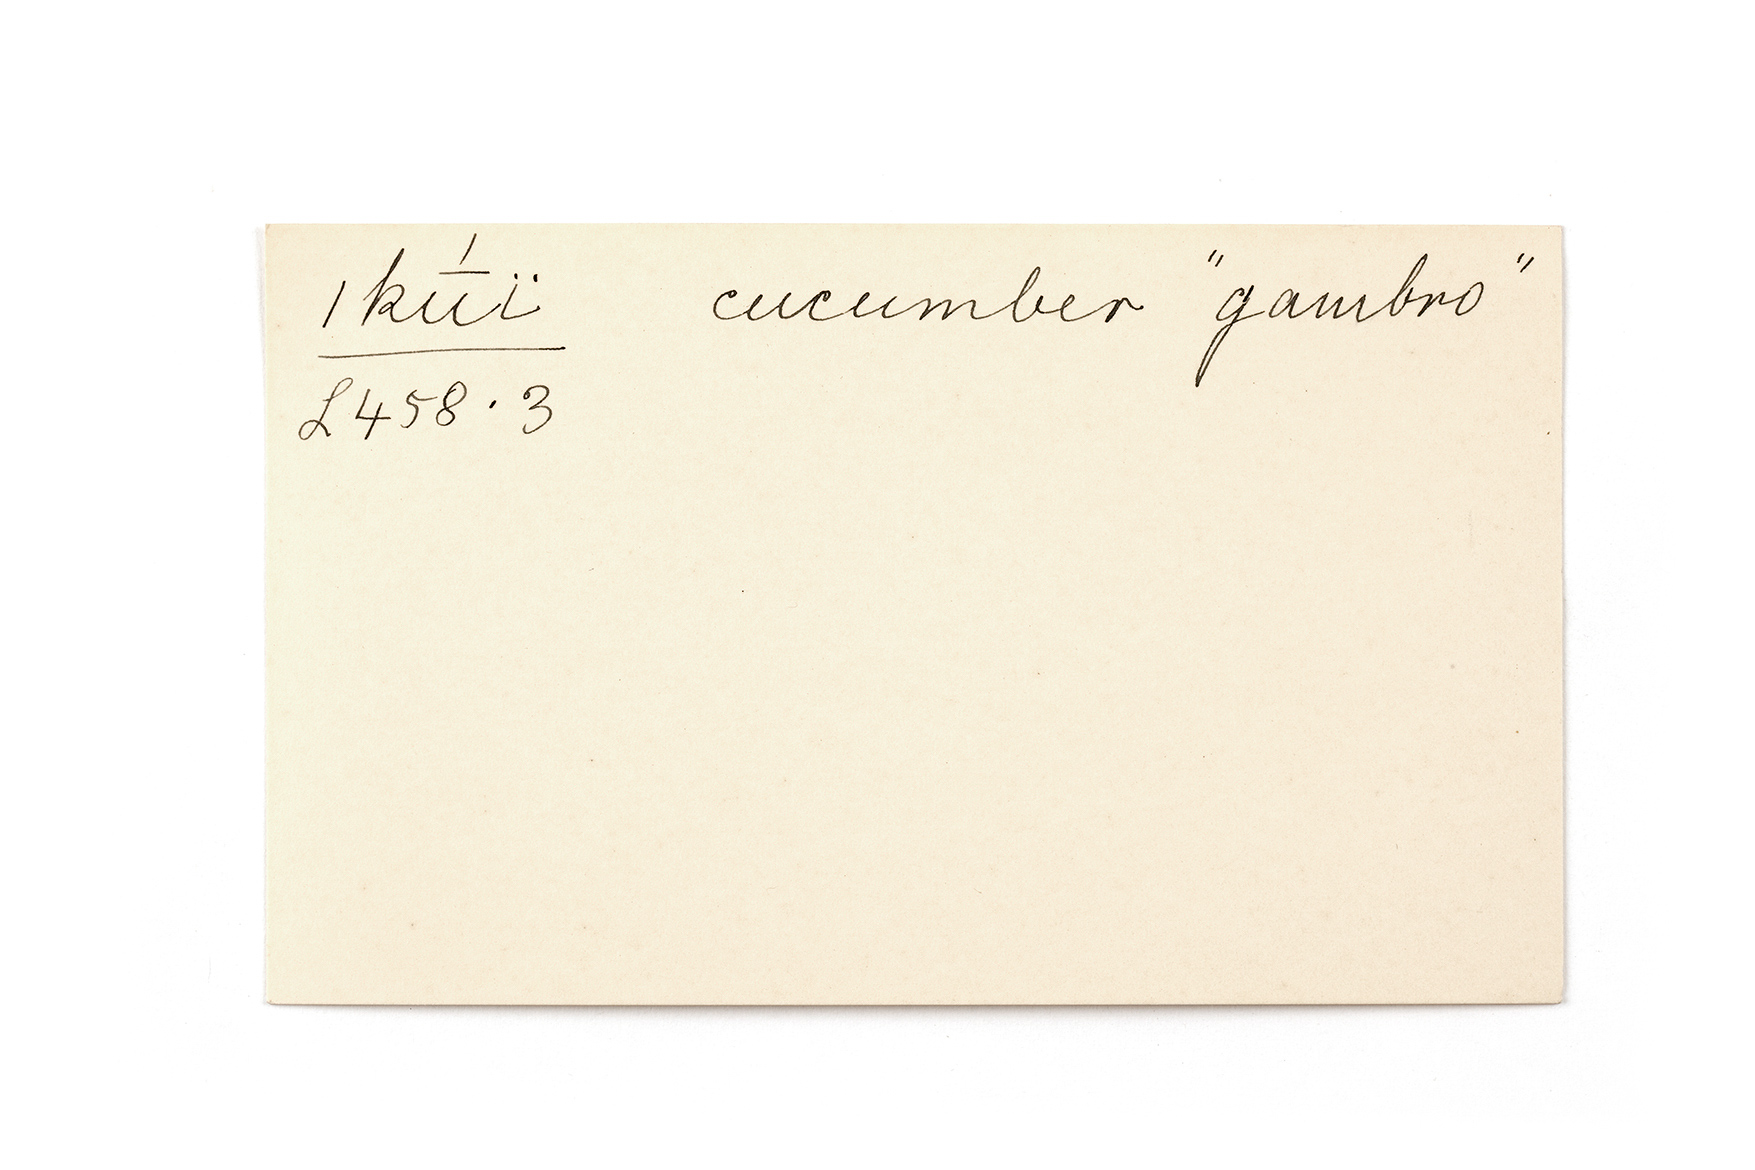 ǀkū́ï cucumber "gambro"
L458.3